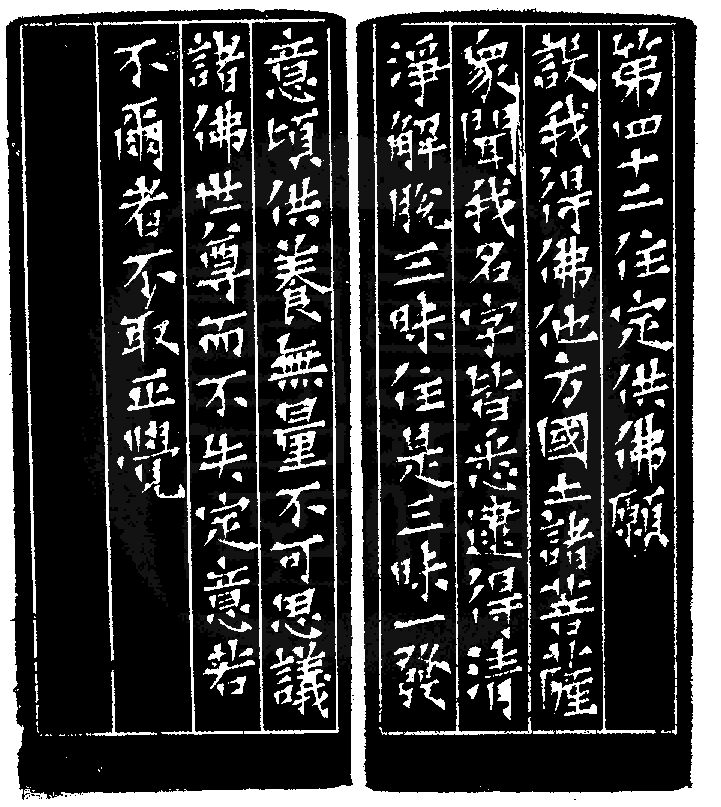 第四十二住定供佛願
設我得佛他方國土諸菩薩
衆聞我名字皆悉逮得清
淨解脫三昧住是三昧一發
意頃供養無量不可思議
諸佛世尊而不失定意若
不爾者不取正覺